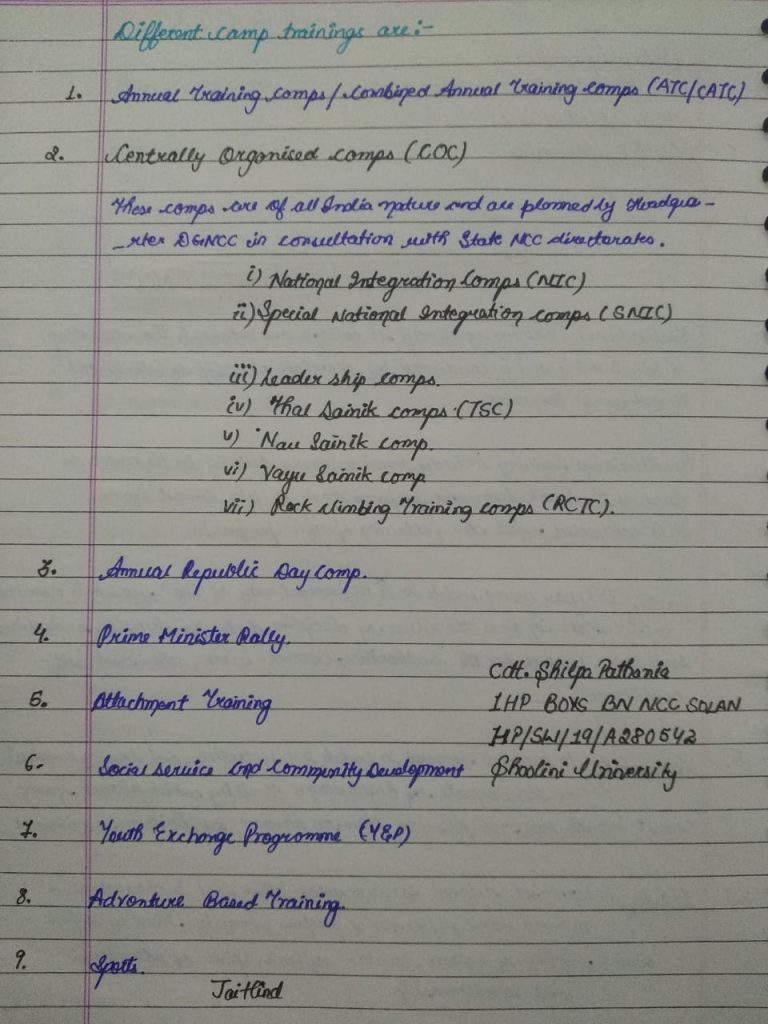 Different camp trainings are:-
1. Annual Training camps/Combined Annual Training camps (ATC/CATC)
2. Centrally Organised camps (COC)
These camps are of all India nature and are planned by Headqua-
-rter DGNCC in consultation with State NCC directorates.
i) National Integration Camps (NIC)
ii) Special National Integration camps (SNIC)
iii) Leader ship camps.
iv) Thal Sainik camps (TSC)
v) Nau Sainik camp.
vi) Vayu Sainik camp
vii) Rock climbing Training camps (RCTC).
3. Annual Republic Day Camp.
4. Prime Minister Rally.
5. Attachment Training
6. Social service and Community Development
7. Youth Exchange Programme (YEP)
8. Adventure Based Training.
9. Sports.
Cdt. Shilpa Pathania
1HP BOYS BN NCC SOLAN
HP/SW/19/A280542
Shoolini University
JaiHind